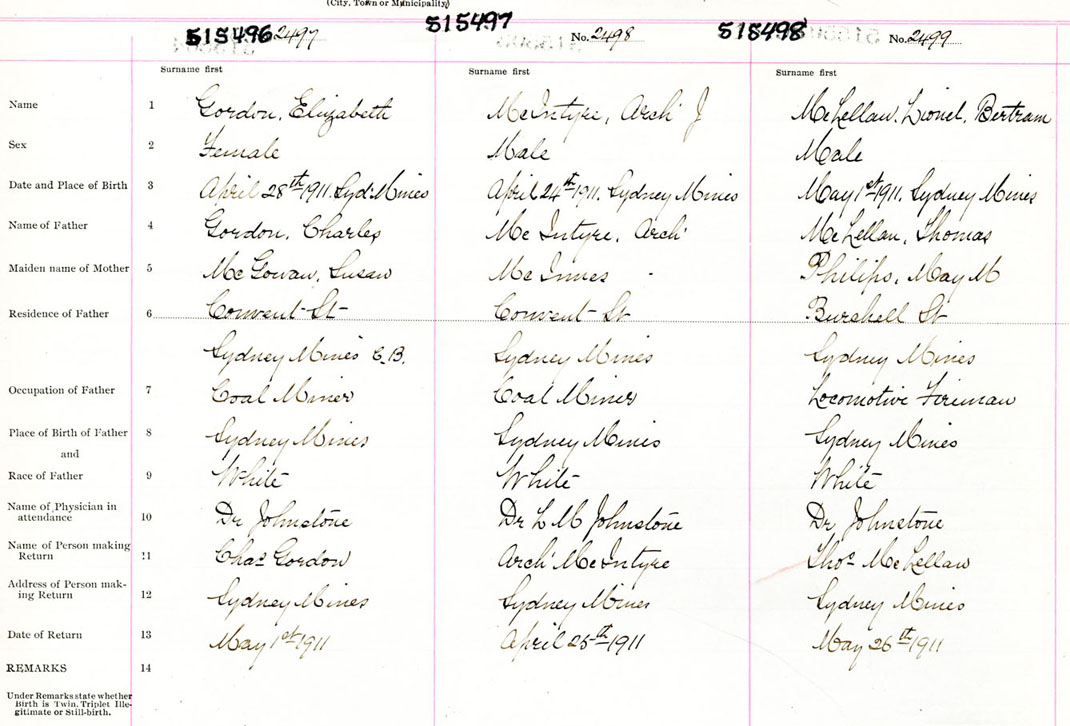 (City, Town or Municipality)
515496 2497 515497 No. 2498 515498 No. 2499
Surname first Surname first Surname first
Name 1 Gordon, Elizabeth McIntyre, Arch' J McLellan, Lionel, Bertram
Sex 2 Female Male Male
Date and Place of Birth 3 April 28th 1911. Syd. Mines April 24th 1911. Sydney Mines May 1st 1911. Sydney Mines
Name of Father 4 Gordon, Charles McIntyre, Arch' McLellan, Thomas
Maiden name of Mother 5 McGowan, Susan McInnes Philips, May M
Residence of Father 6 Convent St Convent St Burchell St
Sydney Mines C.B. Sydney Mines Sydney Mines
Occupation of Father 7 Coal Miner Coal Miner Locomotive Fireman
Place of Birth of Father 8 Sydney Mines Sydney Mines Sydney Mines
and
Race of Father 9 White White White
Name of Physician in
attendance 10 Dr Johnstone Dr L M Johnstone Dr Johnstone
Name of Person making
Return 11 Chas Gordon Arch' McIntyre Thos McLellan
Address of Person mak-
ing Return 12 Sydney Mines Sydney Mines Sydney Mines
Date of Return 13 May 1st 1911 April 25th 1911 May 26th 1911
REMARKS 14
Under Remarks state whether
Birth is Twin, Triplet Ille-
gitimate or Still-birth.